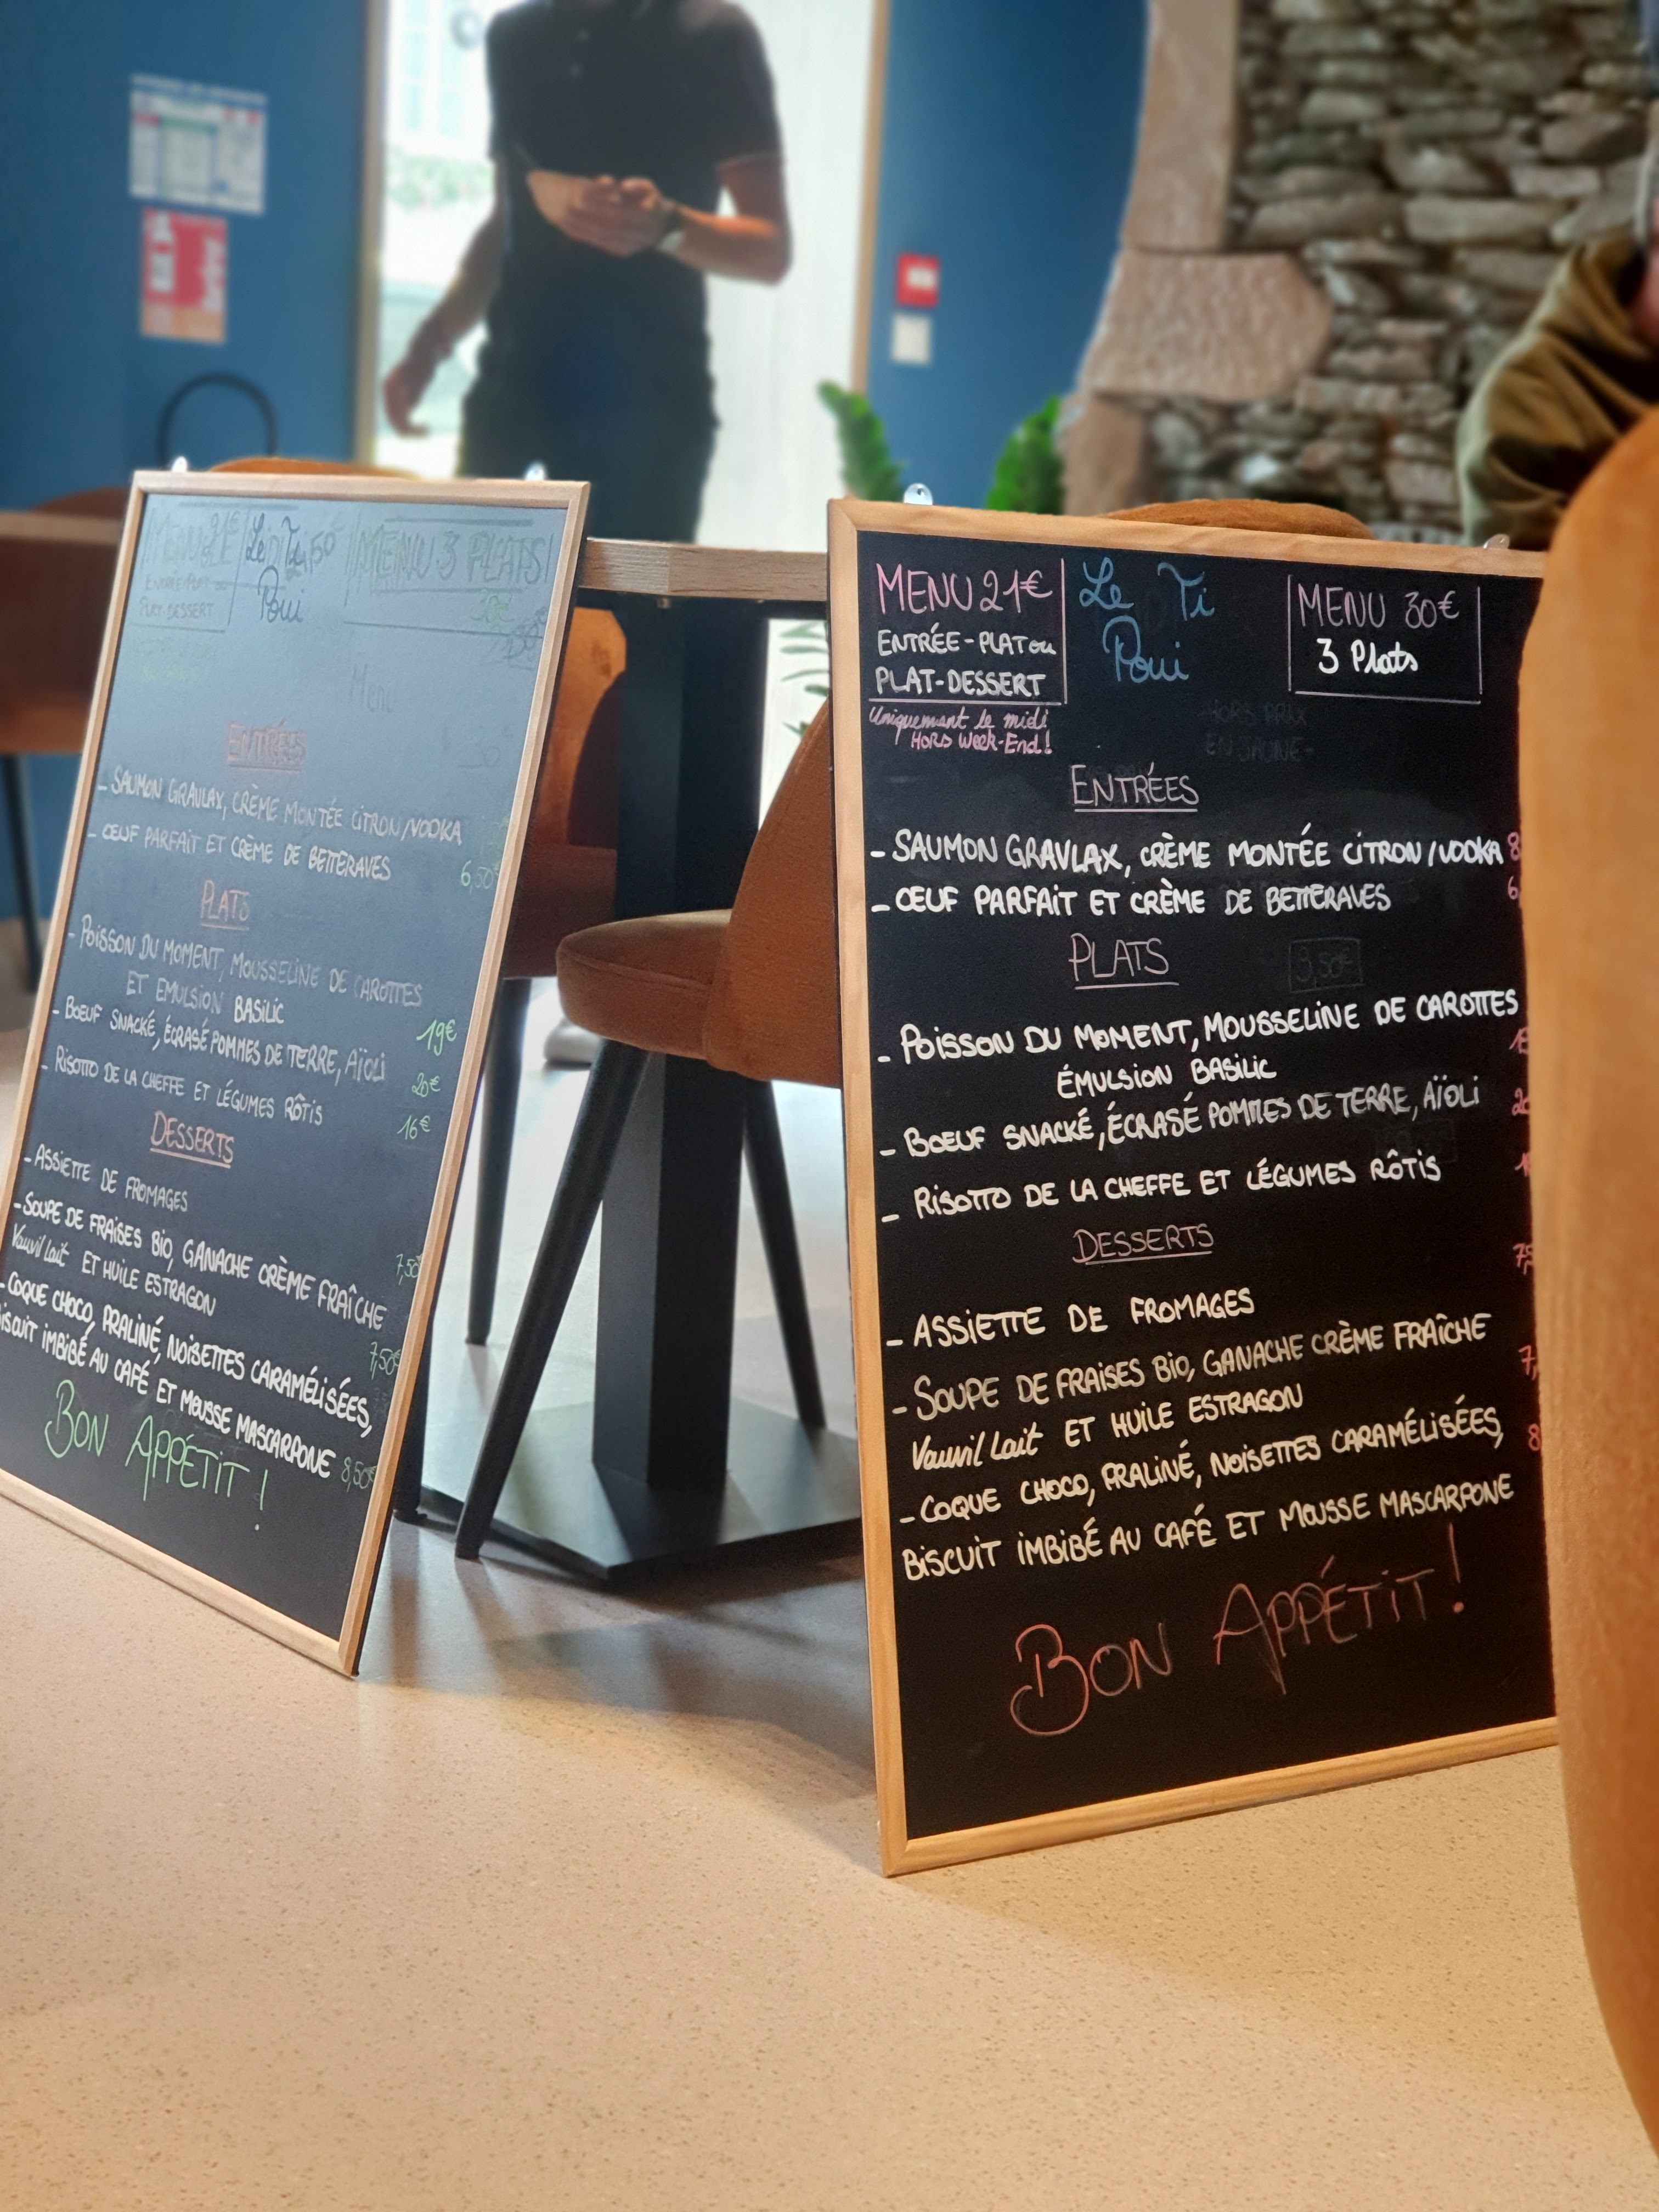 MENU 21€
ENTRÉE-PLAT ou
PLAT-DESSERT
Le Ti
Poui
MENU 3 PLATS
30€
Menu
ENTRÉES
- SAUMON GRAVLAX, CRÈME MONTÉE CITRON/VODKA
- ŒUF PARFAIT ET CRÈME DE BETTERAVES 6,50€
PLATS
- POISSON DU MOMENT, MOUSSELINE DE CAROTTES
ET EMULSION BASILIC 19€
- BOEUF SNACKÉ, ÉCRASÉ POMMES DE TERRE, AÏOLI 20€
- RISOTTO DE LA CHEFFE ET LÉGUMES RÔTIS 16€
DESSERTS
- ASSIETTE DE FROMAGES 7,50€
- SOUPE DE FRAISES BIO, GANACHE CRÈME FRAÎCHE
Vauvil Lait ET HUILE ESTRAGON 7,50€
- COQUE CHOCO, PRALINÉ, NOISETTES CARAMÉLISÉES,
BISCUIT IMBIBÉ AU CAFÉ ET MOUSSE MASCARPONE 8,50€
BON APPÉTIT !
MENU 21€
ENTRÉE-PLAT ou
PLAT-DESSERT
Uniquement le midi
HORS Week-End!
Le Ti
Poui
MENU 30€
3 Plats
-HORS PRIX
EN JAUNE-
ENTRÉES
- SAUMON GRAVLAX, CRÈME MONTÉE CITRON/VODKA 8
- ŒUF PARFAIT ET CRÈME DE BETTERAVES 6,
PLATS
3,50€
- POISSON DU MOMENT, MOUSSELINE DE CAROTTES
ÉMULSION BASILIC
- BOEUF SNACKÉ, ÉCRASÉ POMMES DE TERRE, AÏOLI
- RISOTTO DE LA CHEFFE ET LÉGUMES RÔTIS
DESSERTS
- ASSIETTE DE FROMAGES
- SOUPE DE FRAISES BIO, GANACHE CRÈME FRAÎCHE 7,
Vauvil Lait ET HUILE ESTRAGON
- COQUE CHOCO, PRALINÉ, NOISETTES CARAMÉLISÉES, 8
BISCUIT IMBIBÉ AU CAFÉ ET MOUSSE MASCARPONE
BON APPÉTIT !